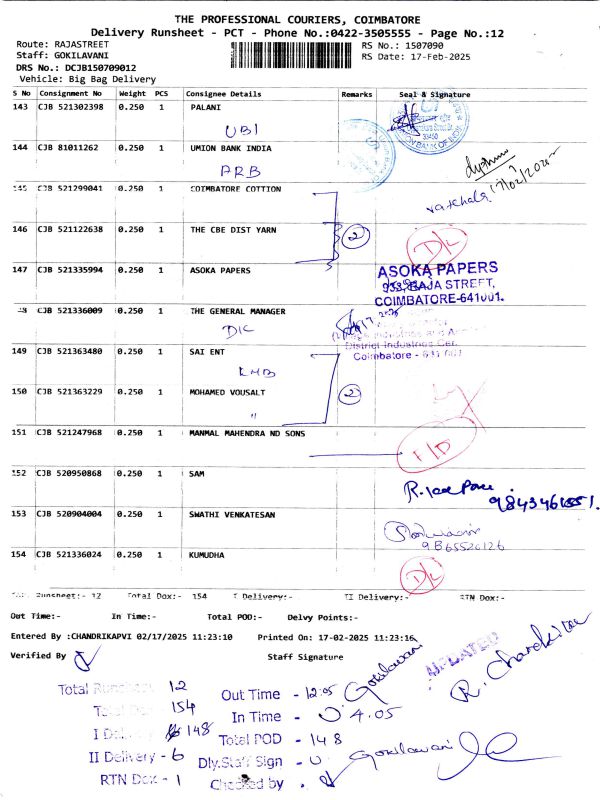 THE PROFESSIONAL COURIERS, COIMBATORE
Delivery Runsheet - PCT - Phone No.:0422-3505555 - Page No.:12
Route: RAJASTREET
RS No.: 1507090
Staff: GOKILAVANI
RS Date: 17-Feb-2025
DRS No.: DCJB150709012
Vehicle: Big Bag Delivery
S No Consignment No Weight PCS Consignee Details Remarks Seal & Signature
143 CJB 521302398 0.250 1 PALANI
UBI
144 CJB 81011262 0.250 1 UMION BANK INDIA
ARB
145 CJB 521299041 0.250 1 COIMBATORE COTTION
17/02/2025
146 CJB 521122638 0.250 1 THE CBE DIST YARN 2 D/L
147 CJB 521335994 0.250 1 ASOKA PAPERS
ASOKA PAPERS
952, RAJA STREET,
COIMBATORE-641001.
48 CJB 521336009 0.250 1 THE GENERAL MANAGER
DIC
District Industries Cen
Coimbatore - 641 001
149 CJB 521363480 0.250 1 SAI ENT
KMB
150 CJB 521363229 0.250 1 MOHAMED VOUSALT 2
"
151 CJB 521247968 0.250 1 MANMAL MAHENDRA ND SONS
152 CJB 520950868 0.250 1 SAM
153 CJB 520904004 0.250 1 SWATHI VENKATESAN
9865520126
154 CJB 521336024 0.250 1 KUMUDHA D/L
Runsheet:- 12 Total Dox:- 154 I Delivery:- II Delivery:- RTN Dox:-
Out Time:- In Time:- Total POD:- Delvy Points:-
Entered By :CHANDRIKAPVI 02/17/2025 11:23:10 Printed On: 17-02-2025 11:23:16
Verified By Staff Signature
UPDATED
R. Chandrika
Total Runsheet 12 Out Time - 12:05 Gokilavani
Total Dox - 154 In Time - 4.05
I Delivery - 148 Total POD - 148
II Delivery - 6 Dly.Staff Sign - Gokilavani
RTN Dox - 1 Checked by -